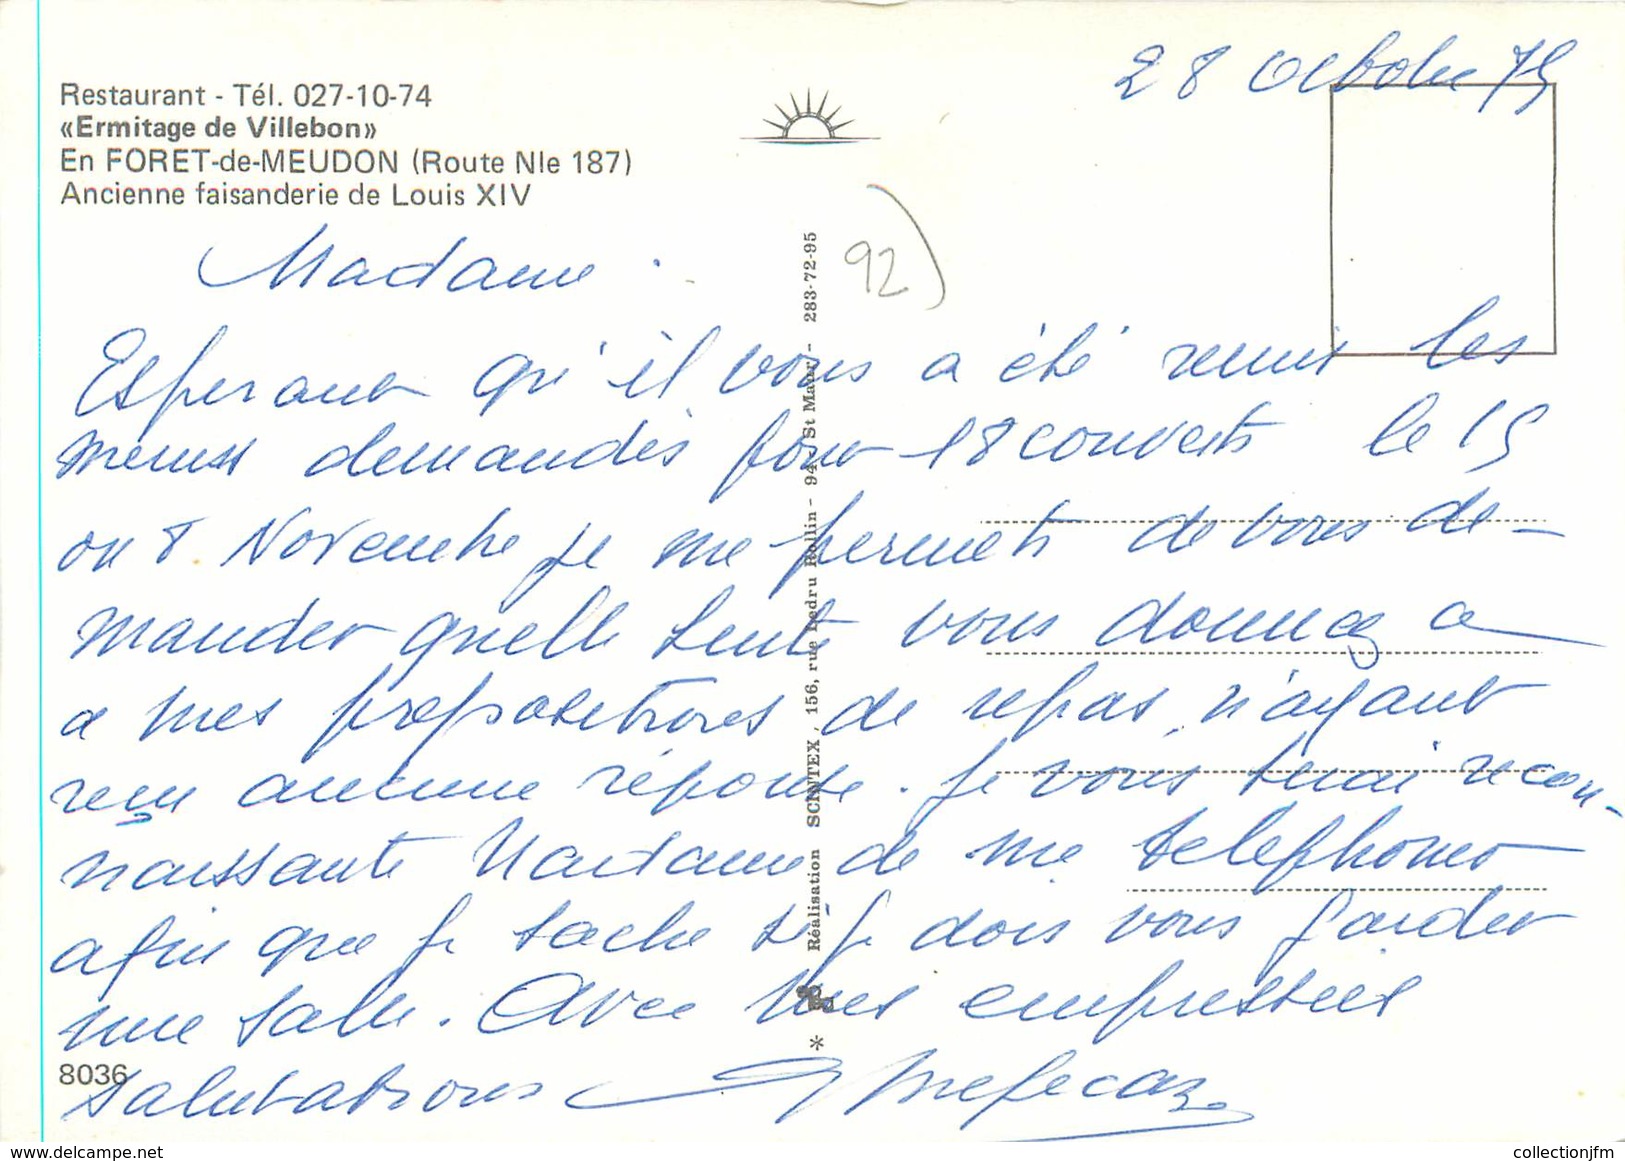 28 octobre 75
Restaurant - Tél. 027-10-74
«Ermitage de Villebon»
En FORET-de-MEUDON (Route Nle 187)
Ancienne faisanderie de Louis XIV
92)
Madame.
Esperant qu'il vous a été remis les
menus demandés pour 18 couverts le 15
ou 8 Novembre je me permets de vous de-
mander quelle suite vous donnez a
a mes propositions de repas, n'ayant
reçu aucune réponse. Je vous serai recon-
naissante Madame de me telephoner
afin que je sache si je dois vous garder
une salle. Avec mes empressées
salutations
8036
* Réalisation SCINTEX, 156, rue Ledru Rollin - 94 - St Maur - 283-72-95
collectionjfm